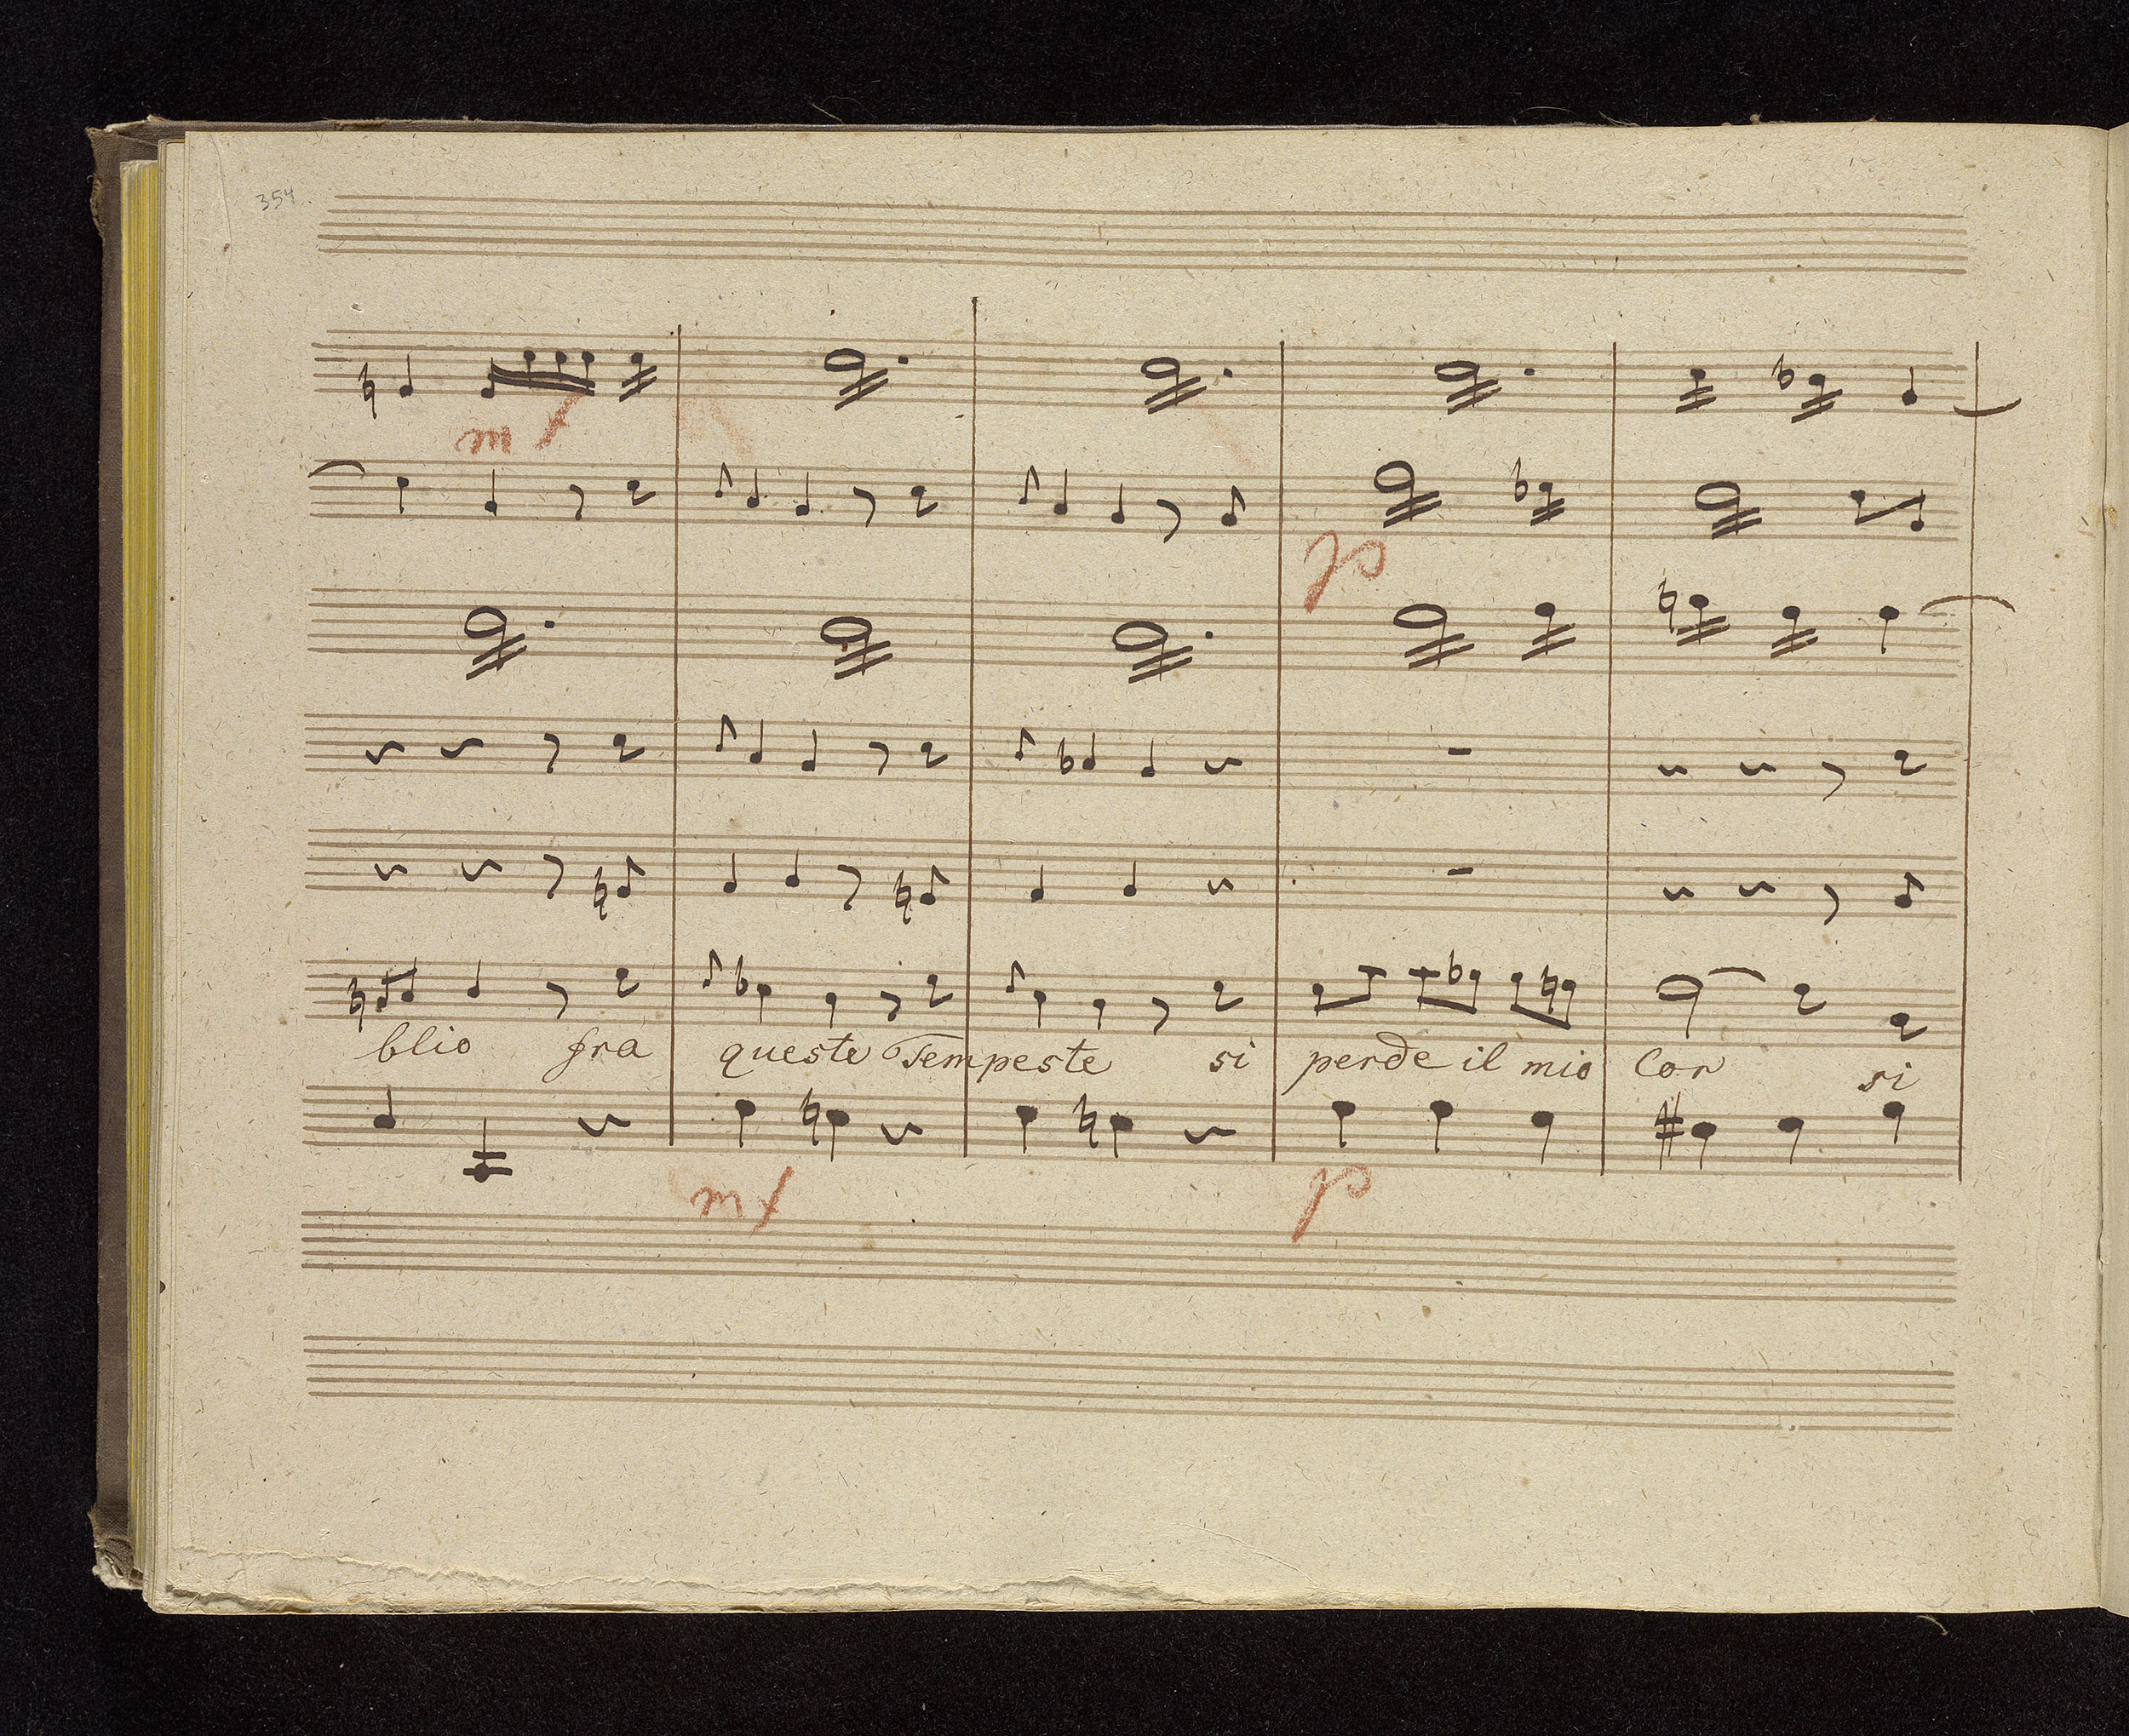 354
mf
p
blio fra queste Tempeste si perde il mio Cor si
mf p